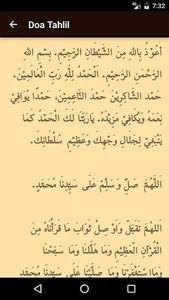 7:32
Doa Tahlil
أَعُوْذُ بِاللهِ مِنَ الشَّيْطَانِ الرَّجِيْمِ. بِسْمِ اللهِ
الرَّحْمَنِ الرَّحِيْمِ. الْحَمْدُ لِلَّهِ رَبِّ الْعَالَمِيْنَ.
حَمْدَ الشَّاكِرِيْنَ حَمْدَ النَّاعِمِيْنَ، حَمْدًا يُوَافِيْ
نِعَمَهُ وَيُكَافِئُ مَزِيْدَهُ. يَارَبَّنَا لَكَ الْحَمْدُ كَمَا
يَنْبَغِيْ لِجَلَالِ وَجْهِكَ وَعَظِيْمِ سُلْطَانِكَ.
اَللَّهُمَّ صَلِّ وَسَلِّمْ عَلَى سَيِّدِنَا مُحَمَّدٍ.
اَللَّهُمَّ تَقَبَّلْ وَأَوْصِلْ ثَوَابَ مَا قَرَأْنَاهُ مِنَ
الْقُرْآنِ الْعَظِيْمِ وَمَا هَلَّلْنَا وَمَا سَبَّحْنَا
وَمَا اسْتَغْفَرْنَا وَمَا صَلَّيْنَا عَلَى سَيِّدِنَا مُحَمَّدٍ